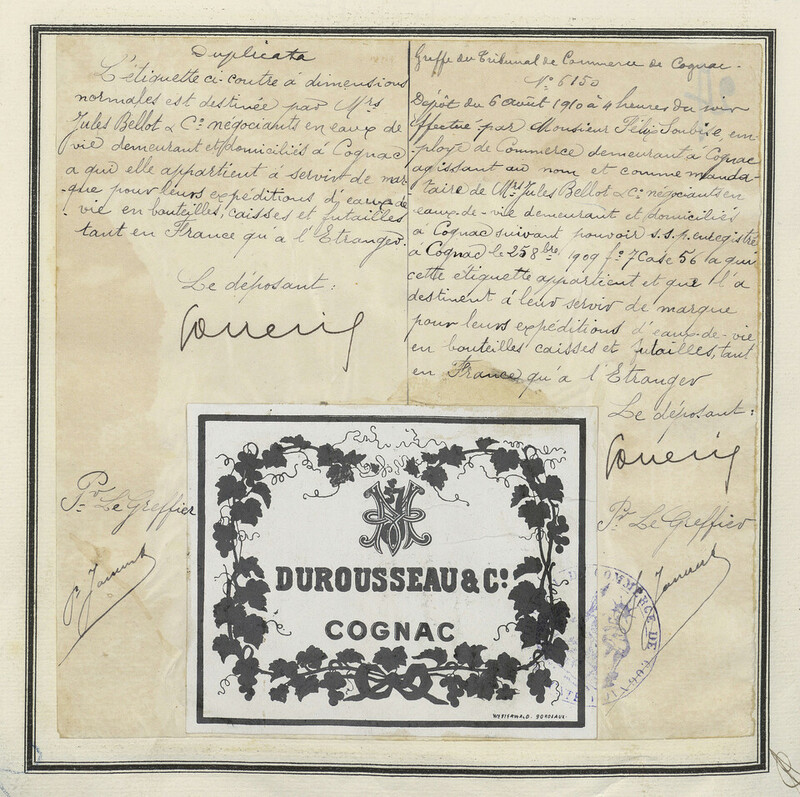 Duplicata
L'étiquette ci contre à dimensions
normales est destinée par Mrs
Jules Bellot & Co négociants en eaux de
vie demeurant et domiciliés à Cognac
a qui elle appartient à servir de mar
que pour leurs expéditions d'eaux de
vie en bouteilles, caisses et futailles
tant en France qu'à l'Etranger.
Le déposant:
Pr Le Greffier
Greffe du Tribunal de Commerce de Cognac.
No 6150
Dépôt du 6 août 1910 à 4 heures du soir
effectué par Monsieur Félix Soubise, em-
ployé de Commerce demeurant à Cognac
agissant au nom et comme manda-
taire de Mrs Jules Bellot & Co négociants en
eaux-de-vie demeurant et domiciliés
à Cognac suivant pouvoir s.s.p. enregistré
à Cognac le 25 8bre 1909 fo 7 Case 56 a qui
cette étiquette appartient et qui l'a
destinent à leur servir de marque
pour leurs expéditions d'eaux-de-vie
en bouteilles caisses et futailles, tant
en France qu'à l'Etranger
Le déposant:
Pr Le Greffier
DUROUSSEAU & Co.
COGNAC
BORDEAUX
DE COMMERCE DE